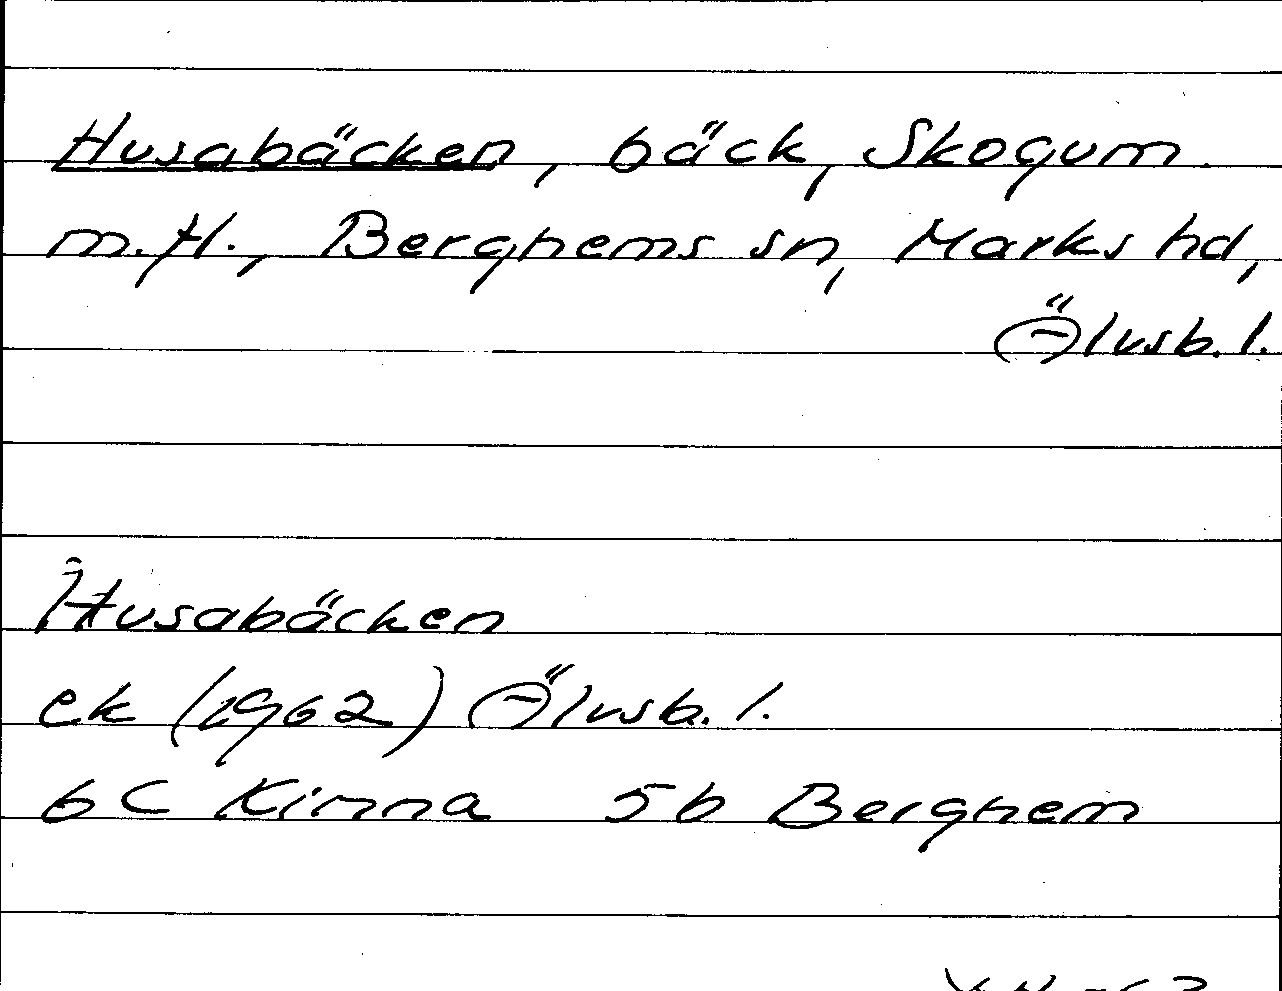 Husabäcken, bäck, Skogum
m.fl., Berghems sn, Marks hd,
Älvsb. l.
Husabäcken
ek (1962) Älvsb. l.
6C Kinna 5b Berghem